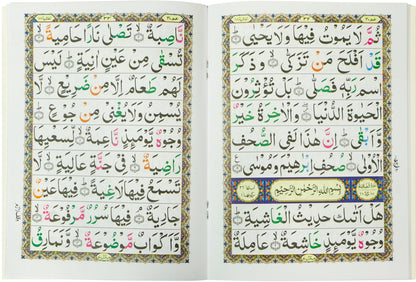 ثُمَّ لَا يَمُوْتُ فِيْهَا وَلَا يَحْيٰى
قَدْ اَفْلَحَ مَنْ تَزَكّٰى وَذَكَرَ
اسْمَ رَبِّهٖ فَصَلّٰى بَلْ تُؤْثِرُوْنَ
الْحَيٰوةَ الدُّنْيَا وَالْاٰخِرَةُ خَيْرٌ
وَّاَبْقٰى اِنَّ هٰذَا لَفِى الصُّحُفِ
الْاُوْلٰى صُحُفِ اِبْرٰهِيْمَ وَمُوْسٰى
بِسْمِ اللّٰهِ الرَّحْمٰنِ الرَّحِيْمِ
هَلْ اَتٰىكَ حَدِيْثُ الْغَاشِيَةِ
وُجُوْهٌ يَّوْمَئِذٍ خَاشِعَةٌ عَامِلَةٌ
نَّاصِبَةٌ تَصْلٰى نَارًا حَامِيَةً
تُسْقٰى مِنْ عَيْنٍ اٰنِيَةٍ لَيْسَ
لَهُمْ طَعَامٌ اِلَّا مِنْ ضَرِيْعٍ لَّا
يُسْمِنُ وَلَا يُغْنِىْ مِنْ جُوْعٍ
وُجُوْهٌ يَّوْمَئِذٍ نَّاعِمَةٌ لِّسَعْيِهَا
رَاضِيَةٌ فِىْ جَنَّةٍ عَالِيَةٍ لَّا
تَسْمَعُ فِيْهَا لَاغِيَةً فِيْهَا عَيْنٌ
جَارِيَةٌ فِيْهَا سُرُرٌ مَّرْفُوْعَةٌ
وَّاَكْوَابٌ مَّوْضُوْعَةٌ وَّنَمَارِقُ